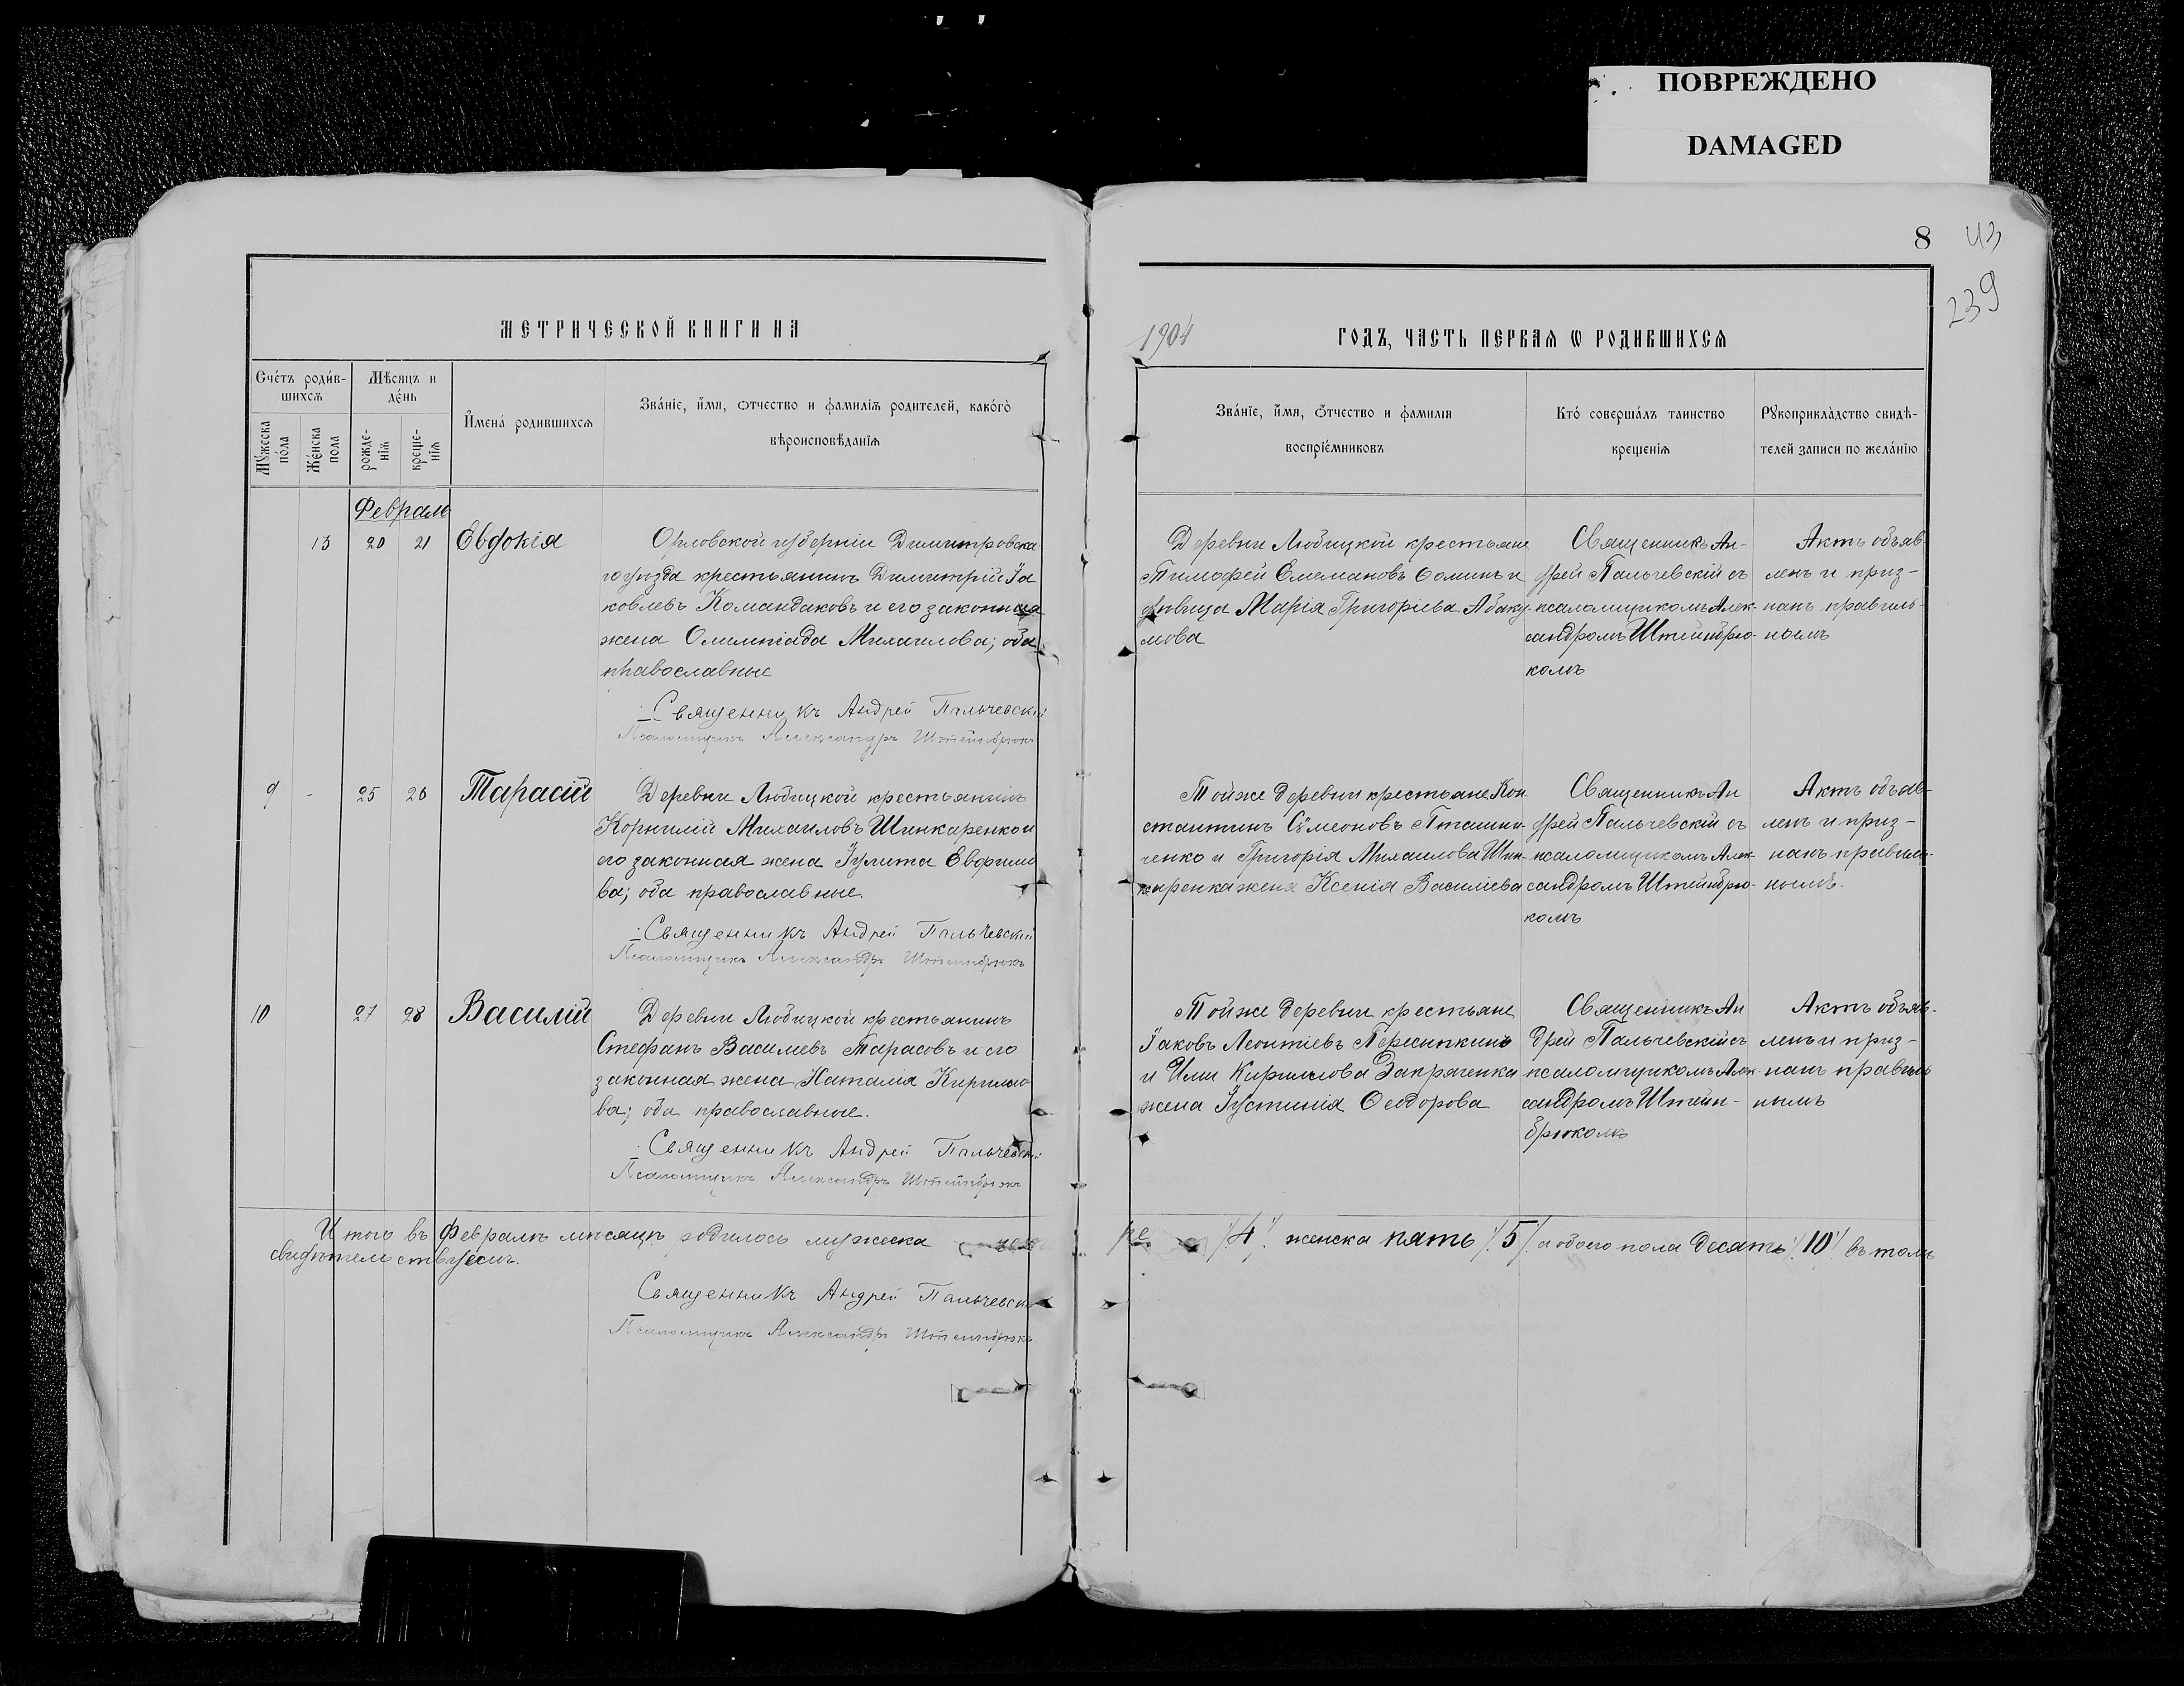 ПОВРЕЖДЕНО
DAMAGED
8 43
239
МЕТРИЧЕСКОЙ КНИГИ НА
1904 ГОДЪ, ЧАСТЬ ПЕРВАЯ Ѡ РОДИВШИХСѦ
Счéтъ роди́в-
шихсѧ
Мꙋ́жеска
по́ла
Жéнска
пола
Мѣ́сяцъ и
дéнь
рожде-
нїѧ
креще-
нїѧ
И҆мена́ родившихсѧ
Зва́нїе, и҆́мя, ѻтчество и фамилїѧ родителей, како́гѡ
вѣроисповѣ́данїѧ
Зва́нїе, и҆́мя, ѻ҆́тчество и фамилїя
воспрїéмниковъ
Кто́ соверша́лъ таинство
крещенїѧ
Рꙋкоприкла̀дство свидѣ-
телей записи по жела́нїю
Февраль
13 20 21 Евдокія
Орловской губерніи Димитровска
го уѣзда крестьянинъ Димитрій Іа
ковлевъ Командаковъ и его законная
жена Олимпіада Михаилова; оба
православные
Священникъ Андрей Пальчевскій
Псаломщикъ Александръ Штейнбрюкъ
Деревни Любицкой крестьяне
Тимофей Емелиановъ Ѳоминъ и
дѣвица Марія Григоріева Абаку-
мова
Священникъ Ан-
дрей Пальчевскій съ
псаломщикомъ Алек-
сандромъ Штейнбрю-
комъ
Актъ объяв-
ленъ и приз-
нанъ правиль-
нымъ
9 - 25 26 Тарасій
Деревни Любицкой крестьянинъ
Корнилій Михаиловъ Шинкаренко и
его законная жена Іулита Евфимо
ва; оба православные.
Священникъ Андрей Пальчевскій
Псаломщикъ Александръ Штейнбрюкъ
Той же деревни крестьяне Кон
стантинъ Сѵмеоновъ Пташни-
ченко и Григорія Михаилова Шин-
каренка жена Ксенія Василіева
Священникъ Ан
дрей Пальчевскій съ
псаломщикомъ Алек-
сандромъ Штейнбрю-
комъ
Актъ объяв-
ленъ и приз-
нанъ правиль-
нымъ.
10 27 28 Василій
Деревни Любицкой крестьянинъ
Стефанъ Василиевъ Тарасовъ и его
законная жена Наталія Кирилло
ва; оба православные.
Священникъ Андрей Пальчевскій
Псаломщикъ Александръ Штейнбрюкъ
Той же деревни крестьяне
Іаковъ Леонтіевъ Пересипкинъ
и Иліи Кириллова Закряченка
жена Іустинія Ѳеодорова
Священникъ Ан
дрей Пальчевскій съ
псаломщикомъ Алек-
сандромъ Штейн-
брюкомъ
Актъ объяв-
ленъ и приз-
нанъ правиль
нымъ
Итого въ Февралѣ мѣсяцѣ родилось мужеска женска пять /5/ а обоего пола десять /10/ въ томъ
свидѣтельствуемъ.
Священникъ Андрей Пальчевскій
Псаломщикъ Александръ Штейнбрюкъ